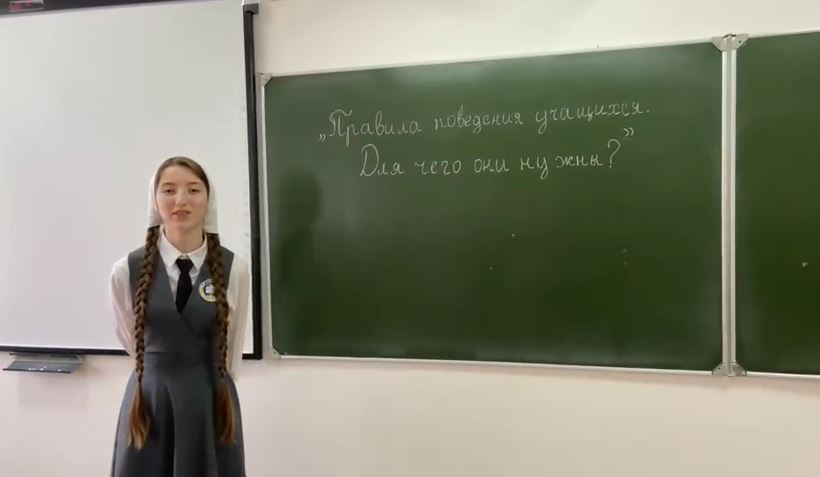 „Правила поведения учащихся.
Для чего они нужны?”